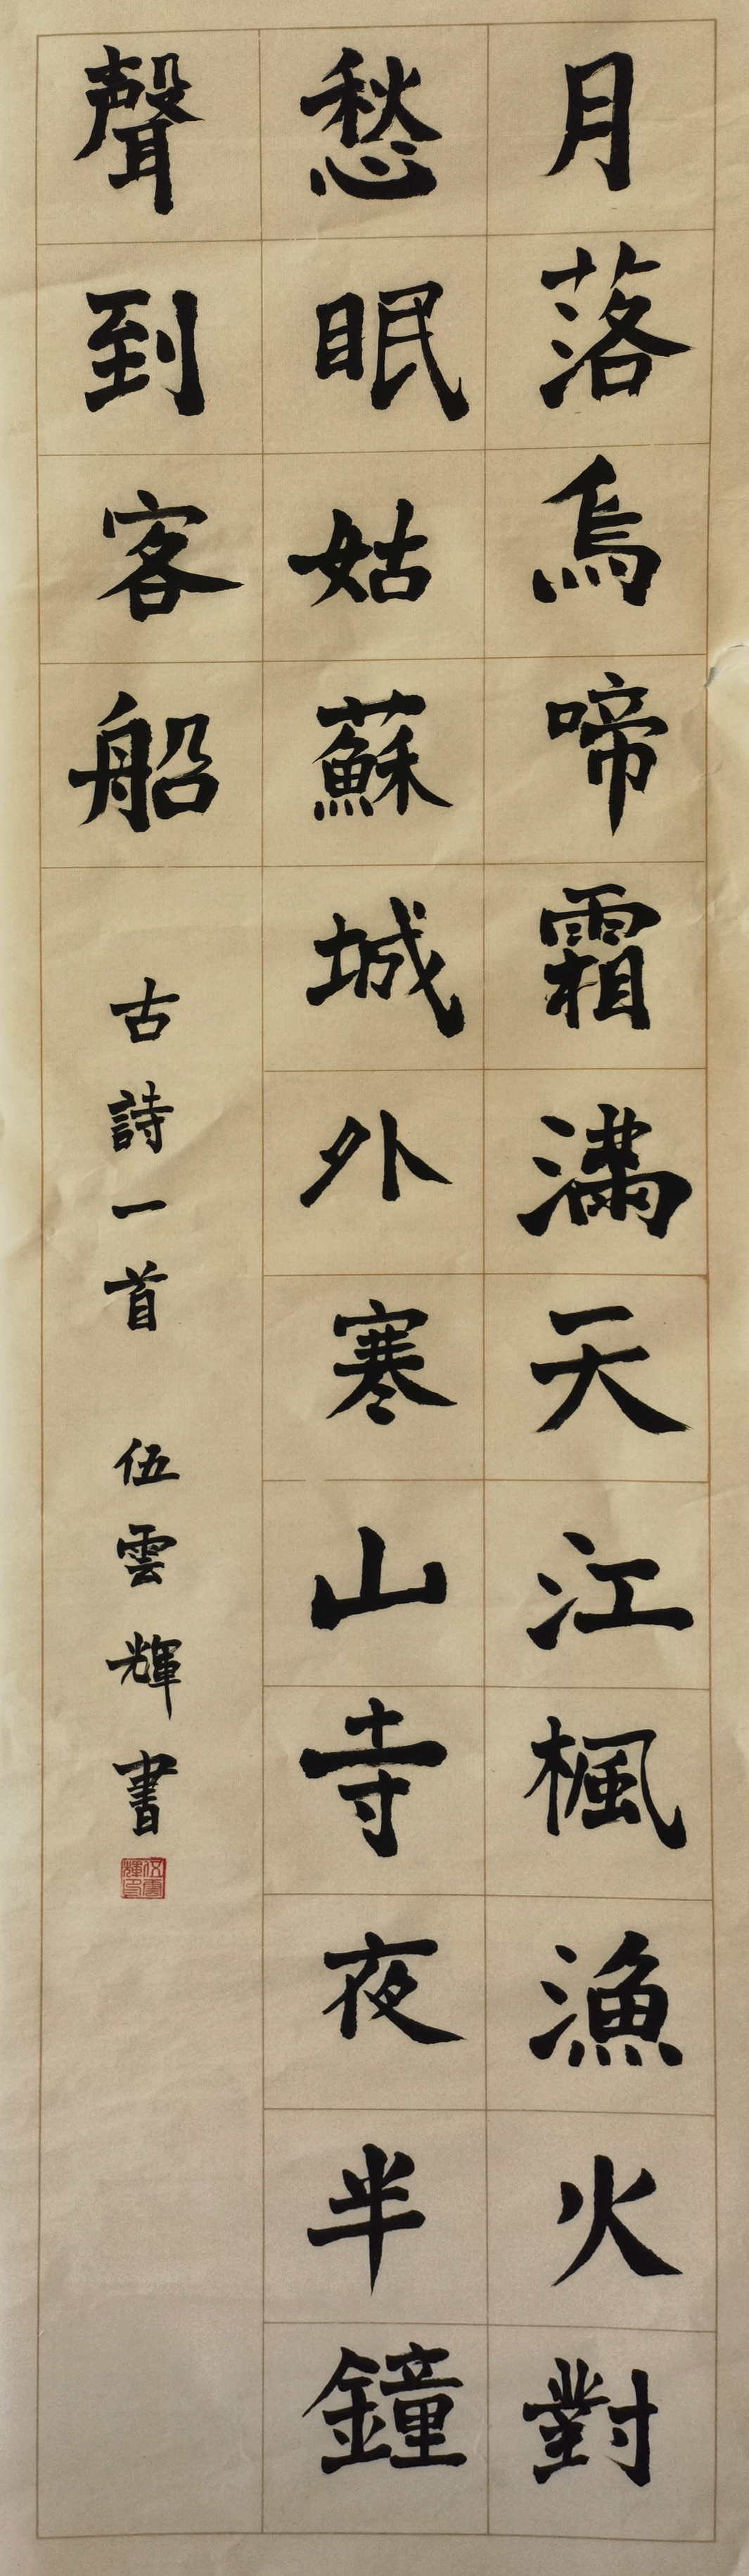 月落烏啼霜滿天江楓漁火對
愁眠姑蘇城外寒山寺夜半鐘
聲到客船
古詩一首 伍雲輝書
伍雲輝印